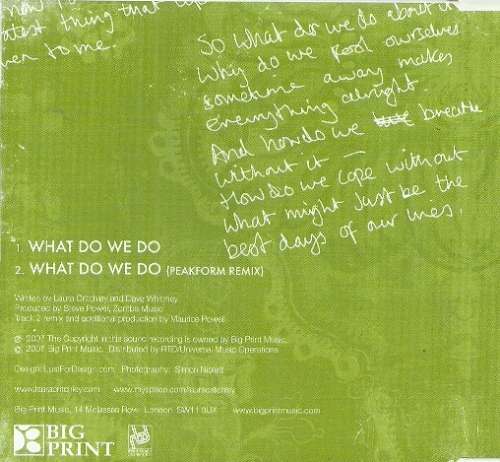 how to
test thing that
ven to me.
So what do we do about it
Why do we fool ourselves
sometime away makes
Everything alright.
And how do we breathe
without it –
How do we cope without
what might just be the
best days of our lives.
1. WHAT DO WE DO
2. WHAT DO WE DO (PEAKFORM REMIX)
Written by Laura Critchley and Dave Whitney
Produced by Steve Power, Zomba Music
Track 2 remix and additional production by Maurice Powell
℗ 2007 The Copyright in this sound recording is owned by Big Print Music.
© 2007 Big Print Music. Distributed by RTD/Universal Music Operations
Design: LustForDesign.com Photography: Simon
www.lauracritchley.com www.myspace.com/lauracritchley
Big Print Music, 14 Molasses Row, London SW11 3UX www.bigprintmusic.com
BIG
PRINT